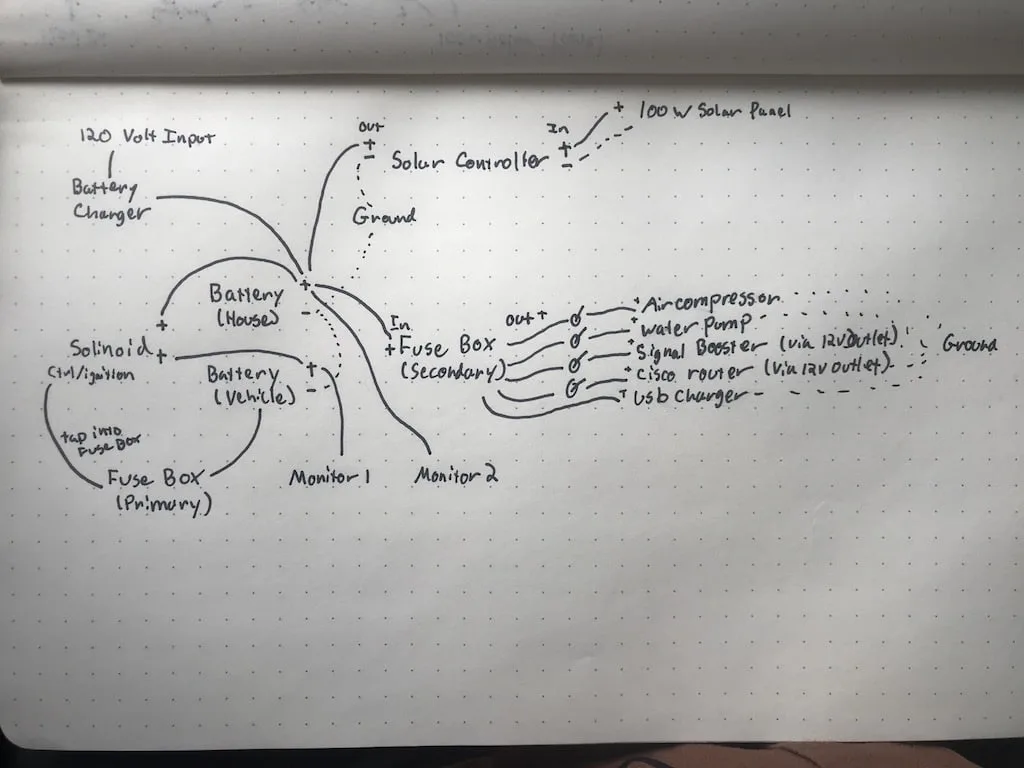 120 Volt Input
Battery
Charger
out
+
-
Solar Controller
In
+
-
+
100 w Solar Panel
Ground
+
Battery
(House)
+
-
Solinoid
+
Ctrl/ignition
Battery
(Vehicle)
+
-
tap into
Fuse Box
Fuse Box
(Primary)
Monitor 1
Monitor 2
In
+ Fuse Box
(Secondary)
out +
+ Air compressor
+ Water Pump
+ Signal Booster (via 12v outlet)
+ Cisco router (via 12v outlet)
+ usb charger
Ground